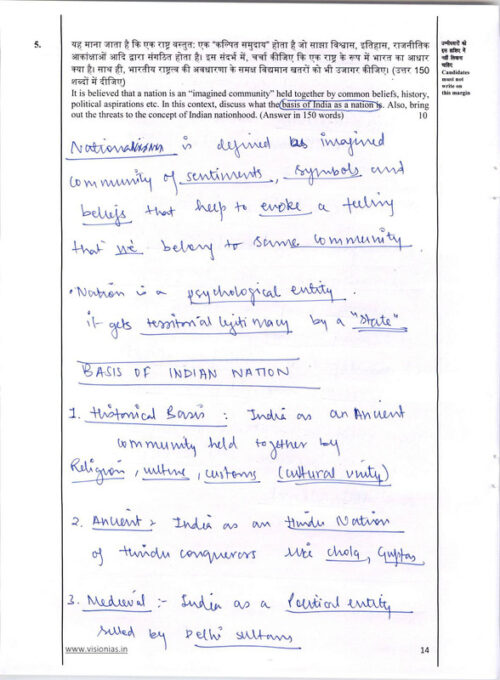 5. यह माना जाता है कि एक राष्ट्र वस्तुतः एक “कल्पित समुदाय” होता है जो साझा विश्वास, इतिहास, राजनीतिक
आकांक्षाओं आदि द्वारा संगठित होता है। इस संदर्भ में, चर्चा कीजिए कि एक राष्ट्र के रूप में भारत का आधार
क्या है। साथ ही, भारतीय राष्ट्रत्व की अवधारणा के समक्ष विद्यमान खतरों को भी उजागर कीजिए। (उत्तर 150
शब्दों में दीजिए)
It is believed that a nation is an “imagined community” held together by common beliefs, history,
political aspirations etc. In this context, discuss what the basis of India as a nation is. Also, bring
out the threats to the concept of Indian nationhood. (Answer in 150 words) 10
उम्मीदवारों को
इस हाशिए में
नहीं लिखना
चाहिए
Candidates
must not
write on
this margin
Nationalism is defined as imagined
community of sentiments, symbols and
beliefs that help to evoke a feeling
that we belong to same community
• Nation is a psychological entity.
it gets territorial legitimacy by a "State"
BASIS OF INDIAN NATION
1. Historical Basis : India as an Ancient
community held together by
Religion, culture, customs (cultural unity)
2. Ancient : India as an Hindu Nation
of Hindu conquerors like chola, Guptas
3. Medieval :- India as a Political entity
ruled by Delhi sultans
www.visionias.in 14